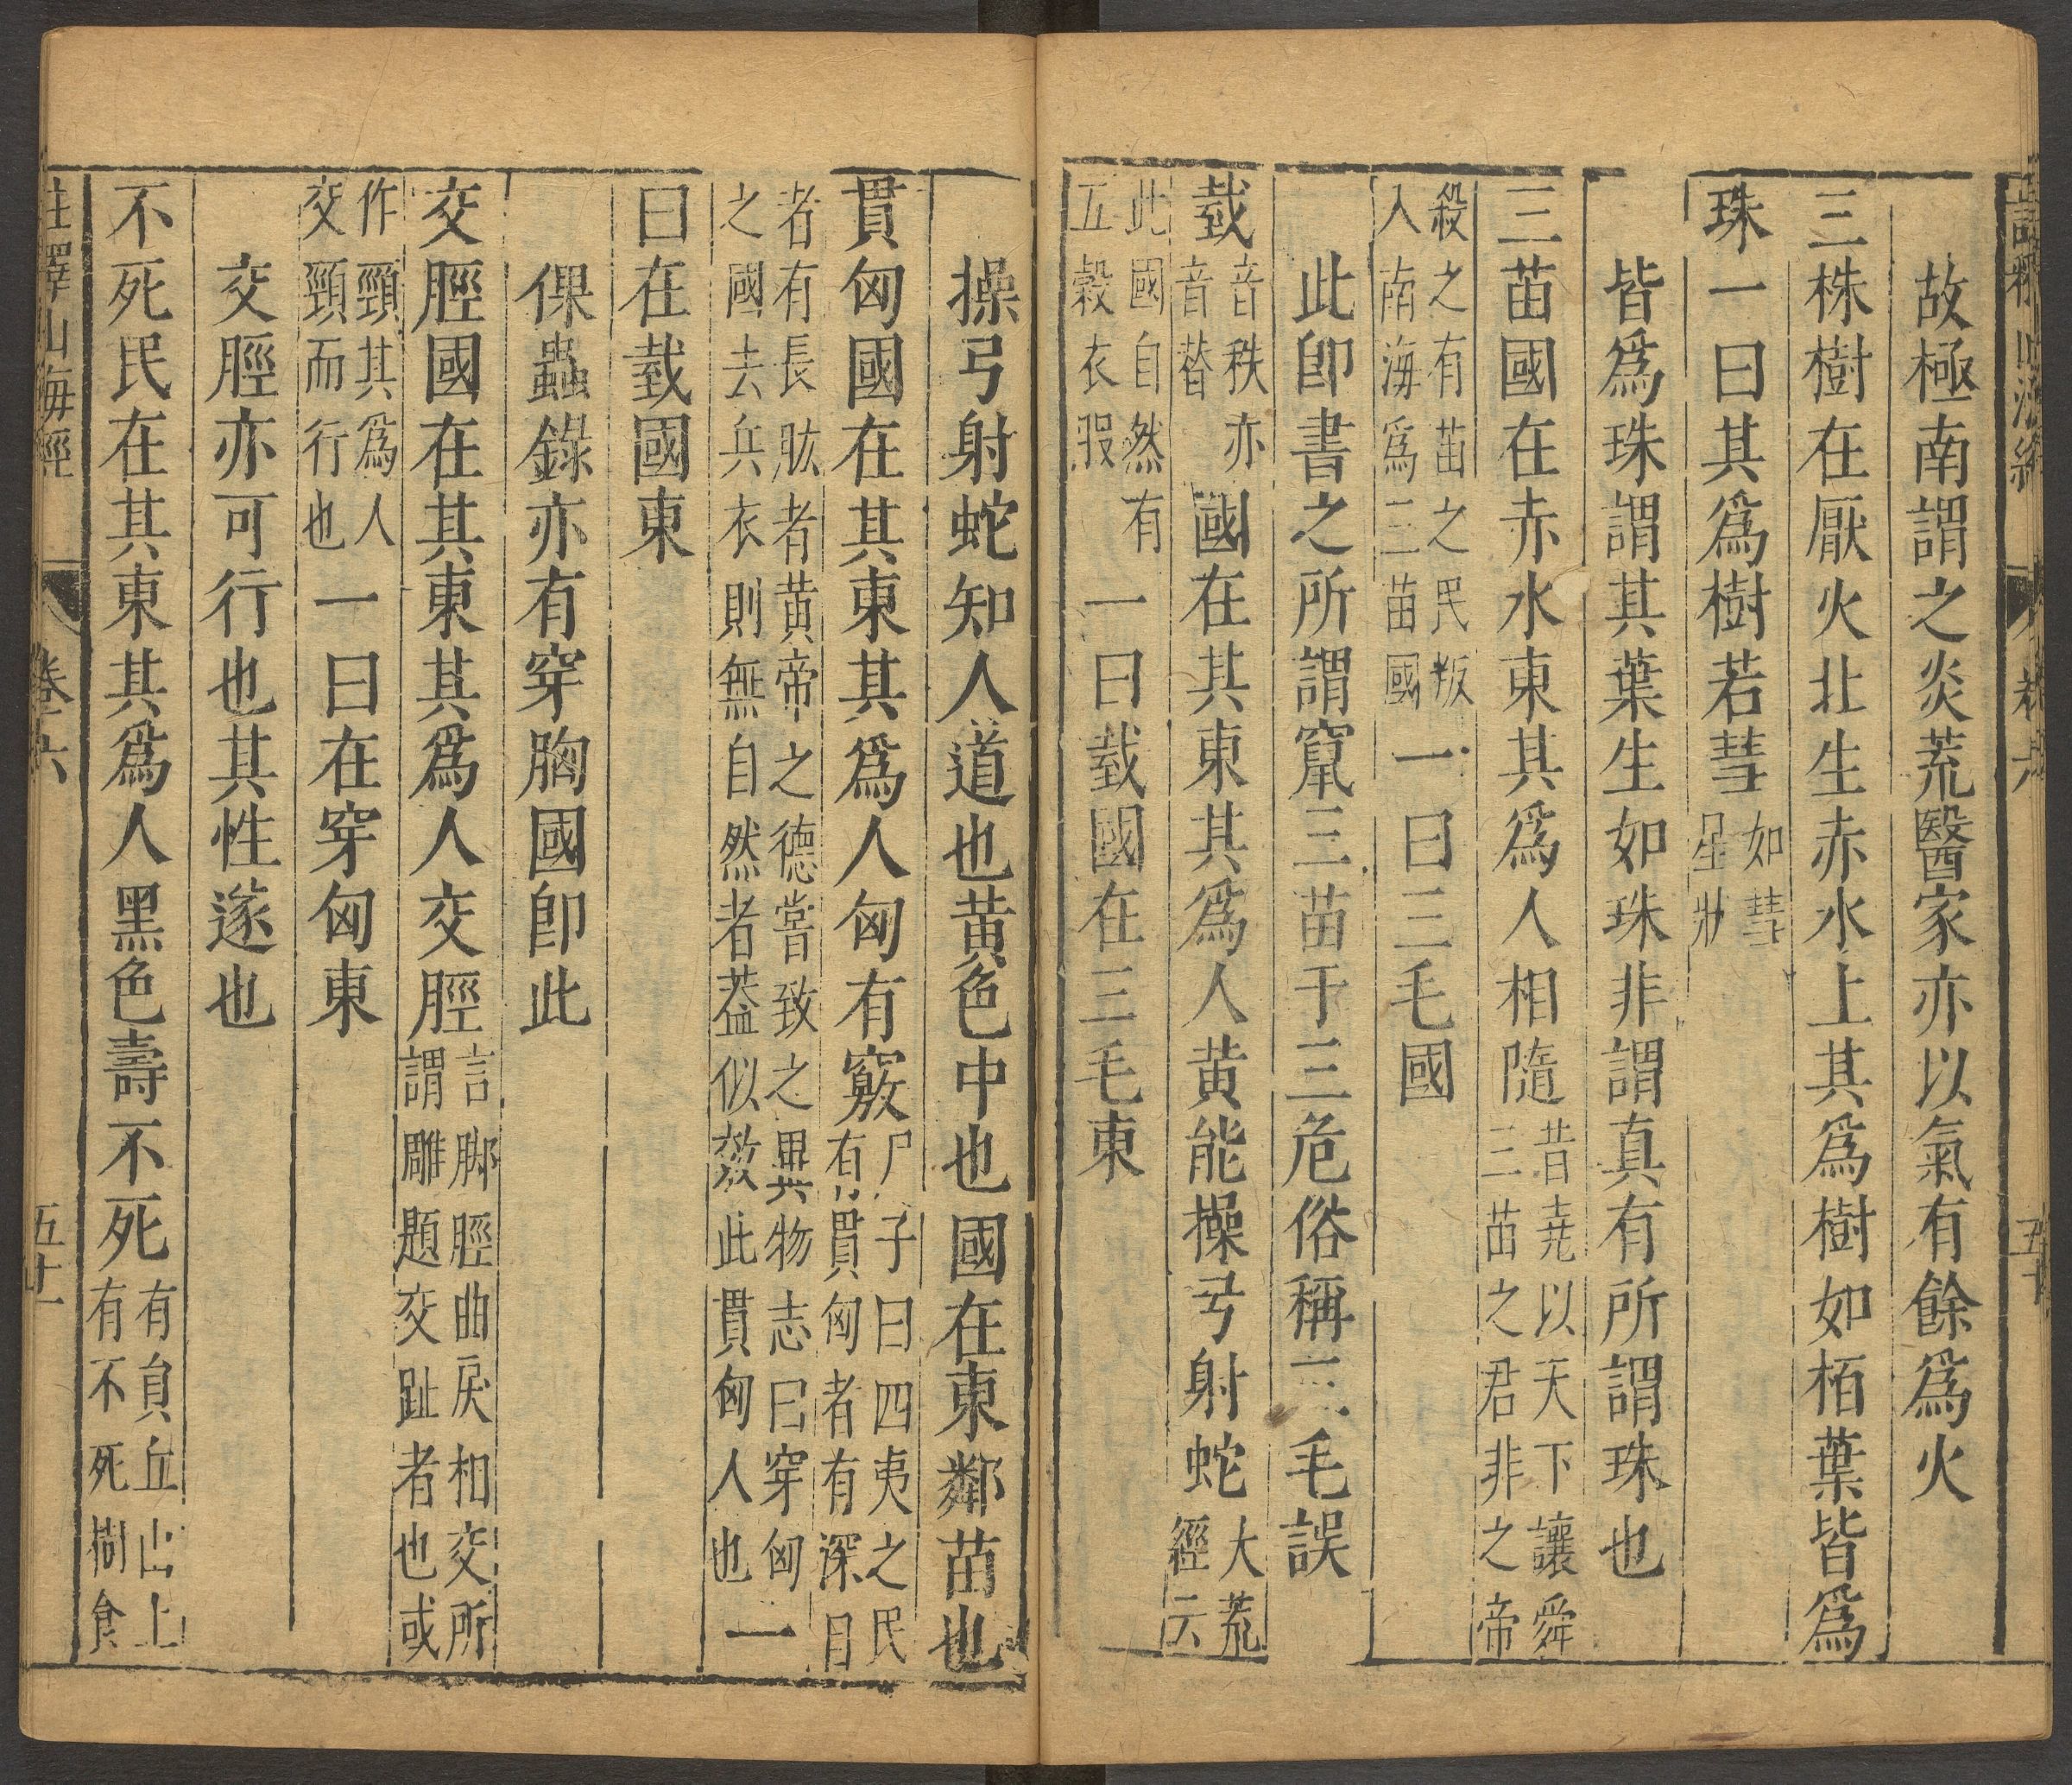 故極南謂之炎荒醫家亦以氣有餘爲火
三株樹在厭火北生赤水上其爲樹如栢葉皆爲
珠一曰其爲樹若彗如彗星狀
皆爲珠謂其葉生如珠非謂真有所謂珠也
三苗國在赤水東其爲人相隨昔堯以天下讓舜三苗之君非之帝
殺之有苗之民叛入南海爲三苗國一曰三毛國
此卽書之所謂竄三苗于三危俗稱三毛誤
臷音秩亦音替國在其東其爲人黃能操弓射蛇大荒經云
此國自然有五穀衣服一曰臷國在三毛東
操弓射蛇知人道也黃色中也國在東鄰苗也
貫匈國在其東其爲人匈有竅尸子曰四夷之民有貫匈者有深目
者有長肱者黃帝之德嘗致之異物志曰穿匈之國去兵衣則無自然者葢似效此貫匈人也一
曰在臷國東
倮蟲錄亦有穿胸國卽此
交脛國在其東其爲人交脛言脚脛曲戾相交所謂雕題交趾者也或
作頸其爲人交頸而行也一曰在穿匈東
交脛亦可行也其性遂也
不死民在其東其爲人黑色壽不死有負丘山上有不死樹食
註釋山海經 卷六 五十一